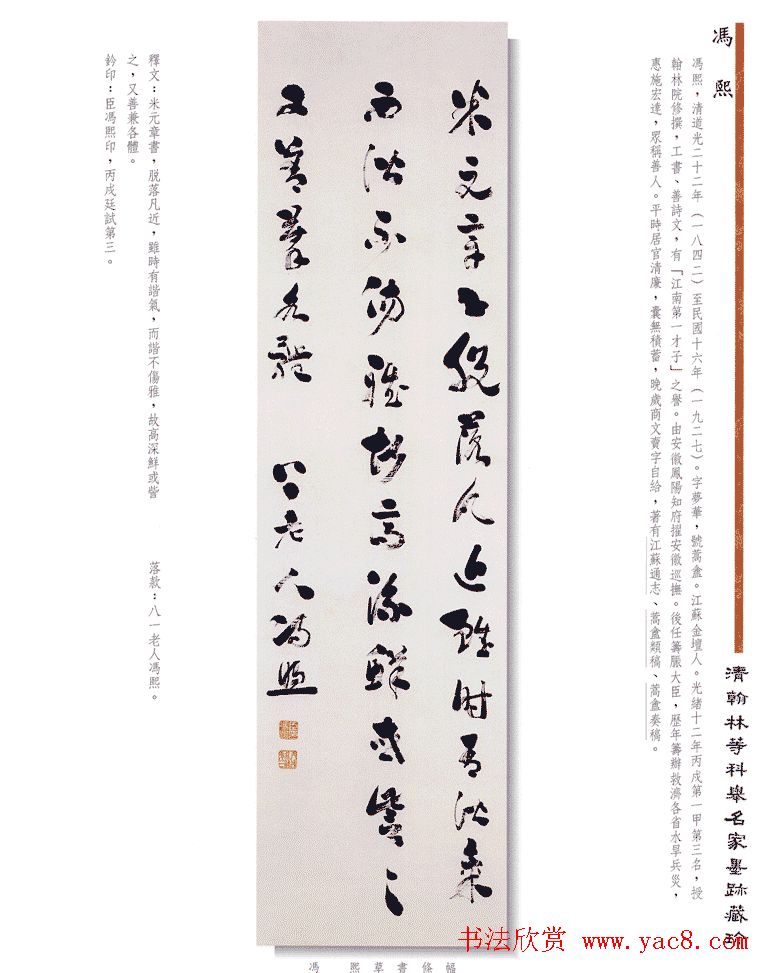 馮熙
馮熙，清道光二十二年（一八四二）至民國十六年（一九二七）。字夢華，號蒿盦。江蘇金壇人。光緒十二年丙戌第一甲第三名，授
翰林院修撰，工書、善詩文，有「江南第一才子」之譽。由安徽鳳陽知府擢安徽巡撫。後任籌賑大臣，歷年籌辦救濟各省水旱兵災，
惠施宏達，眾稱善人。平時居官清廉，囊無積蓄，晚歲商文賣字自給，著有江蘇通志、蒿盦類稿、蒿盦奏稿。
清翰林等科舉名家墨跡藏珍
米元章書脫落凡近雖時有諧氣
而諧不傷雅故高深鮮或訾之
又善兼各體 八一老人馮煦
釋文：米元章書，脫落凡近，雖時有諧氣，而諧不傷雅，故高深鮮或訾
之，又善兼各體。
落款：八一老人馮熙。
鈐印：臣馮熙印，丙戌廷試第三。
馮熙草書條幅
书法欣赏 www.yac8.com